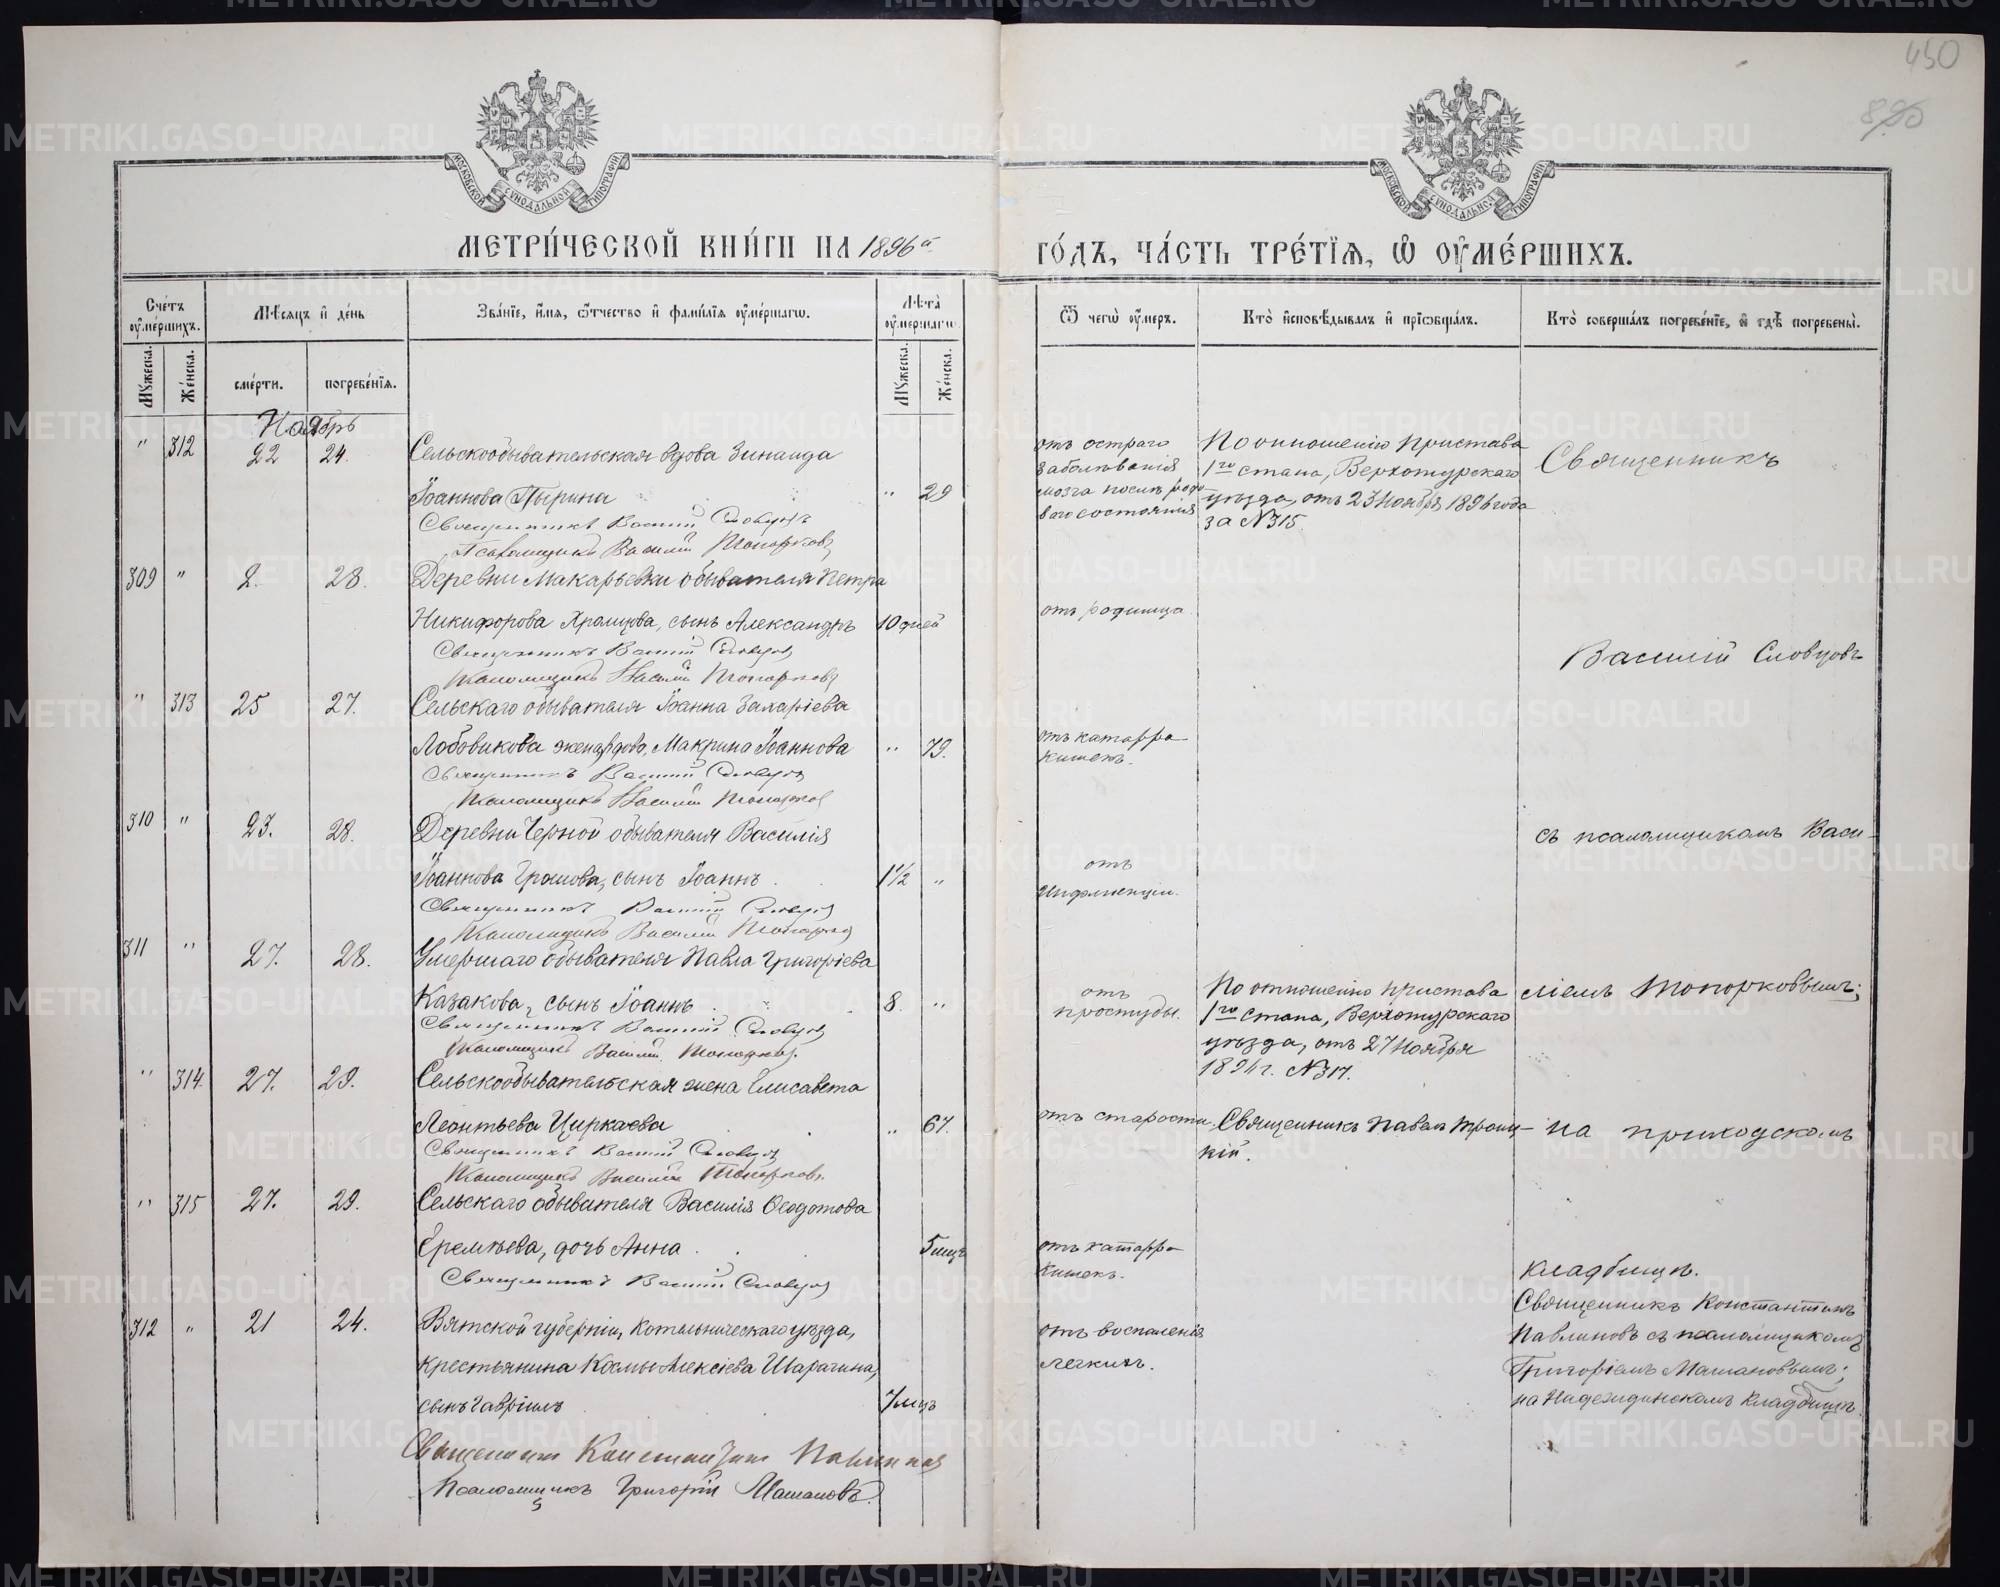 450
890
МОСКОВСКОЙ СѴНОДАЛЬНОЙ ТИПОГРАФІИ
МОСКОВСКОЙ СѴНОДАЛЬНОЙ ТИПОГРАФІИ
МЕТРИ́ЧЕСКОЙ КНИ́ГИ НА 1896й
ГО́ДЪ, ЧА́СТЬ ТРЕ́ТІѦ, Ѡ ОУМЕ́РШИХЪ.
Сче́тъ оуме́ршихъ.
Мѣ́сяцъ и де́нь
Зва́нїе, и́мя, ѻ́тчество и фами́лїя оуме́ршагѡ.
Лѣта̀ оуме́ршагѡ.
Ѿ чегѡ̀ оу́меръ.
Кто̀ исповѣ́дывалъ и прїѡбща́лъ.
Кто̀ соверша́лъ погребе́нїе, и гдѣ̀ погребены̀.
Му́жеска.
Же́нска.
сме́рти.
погребе́нїя.
Му́жеска.
Же́нска.
Ноябрь
" 312 22 24. Сельскообывательская вдова Зинаида
Іоаннова Пырина " 29
Священникъ Василій Словцовъ
Псаломщикъ Василій Топорковъ
отъ остраго
заболѣванія
мозга послѣ родо-
ваго состоянія
По отношенію Пристава
1го стана, Верхотурскаго
уѣзда, отъ 23 Ноября 1896 года
за №315.
Священникъ
309 " 2. 28. Деревни Макарьевки обывателя Петра
Никифорова Храмцова, сынъ Александръ 10 дней
Священникъ Василій Словцовъ
Псаломщикъ Василій Топорковъ
отъ родимца
Василій Словцовъ
" 313 25 27. Сельскаго обывателя Іоанна Захаріева
Лобовикова жена вдова, Макрина Іоаннова " 79.
Священникъ Василій Словцовъ
Псаломщикъ Василій Топорковъ
отъ катарра
кишекъ.
310 " 23. 28. Деревни Черной обывателя Василія
Іоаннова Грошова, сынъ Іоаннъ 1 1/2 "
Священникъ Василій Словцовъ
Псаломщикъ Василій Топорковъ
отъ
Инфлюенціи.
съ псаломщикомъ Васи-
311 " 27. 28. Умершаго обывателя Павла Григоріева
Казакова, сынъ Іоаннъ 8. "
Священникъ Василій Словцовъ
Псаломщикъ Василій Топорковъ
отъ
простуды.
По отношенію пристава
1го стана, Верхотурскаго
уѣзда, отъ 27 Ноября
1896 г. №317.
ліемъ Топорковымъ;
" 314. 27. 29. Сельскообывательская жена Елисавета
Леонтьева Циркаева " 67.
Священникъ Василій Словцовъ
Псаломщикъ Василій Топорковъ
отъ старости.
Священникъ Павелъ Троиц-
кій.
на приходскомъ
" 315 27. 29. Сельскаго обывателя Василія Ѳеодотова
Еремѣева, дочь Анна 5 мѣц.
Священникъ Василій Словцовъ
отъ катарра
кишекъ.
кладбищѣ.
312 " 21 24. Вятской губерніи, Котельническаго уѣзда,
крестьянина Космы Алексіева Шарагина,
сынъ Гавріилъ 7 мѣц.
отъ воспаленія
легкихъ.
Священникъ Константинъ
Павлиновъ съ псаломщикомъ
Григоріемъ Машановымъ;
на Надеждинскомъ кладбищѣ.
Священникъ Константинъ Павлиновъ
Псаломщикъ Григорій Машановъ.
METRIKI.GASO-URAL.RU